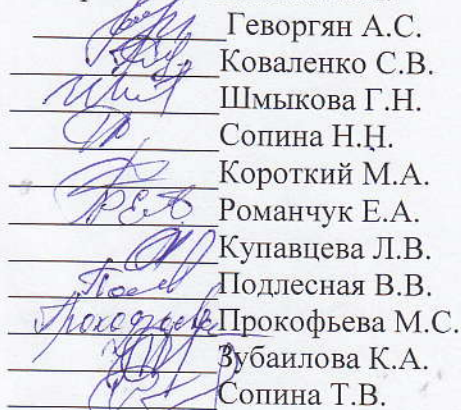 Геворгян А.С.
Коваленко С.В.
Шмыкова Г.Н.
Сопина Н.Н.
Короткий М.А.
Романчук Е.А.
Купавцева Л.В.
Подлесная В.В.
Прокофьева Прокофьева М.С.
Зубаилова К.А.
Сопина Т.В.